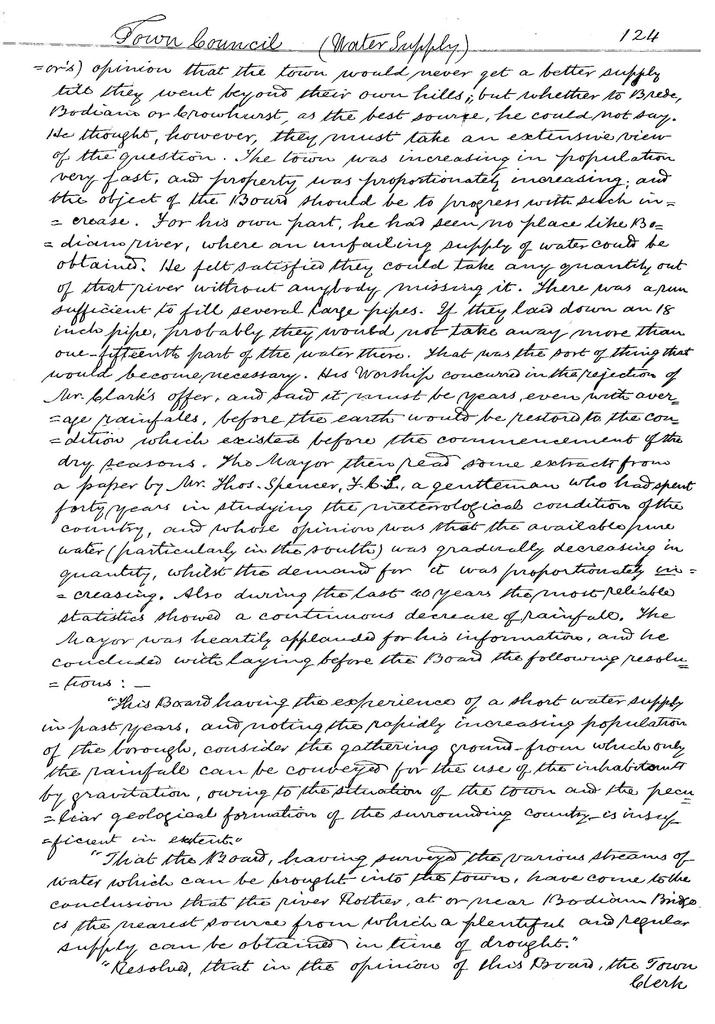 Town Council (Water Supply) 124
=or's) opinion that the town would never get a better supply
till they went beyond their own hills; but whether to Brede,
Bodiam or Crowhurst, as the best source, he could not say.
He thought, however, they must take an extensive view
of the question. The town was increasing in population
very fast, and property was proportionately increasing; and
the object of the Board should be to progress with such in=
=crease. For his own part, he had seen no place like Bo=
=diam river, where an unfailing supply of water could be
obtained. He felt satisfied they could take any quantity out
of that river without anybody missing it. There was a run
sufficient to fill several large pipes. If they laid down an 18
inch pipe, probably they would not take away more than
one-fifteenth part of the water there. That was the sort of thing that
would become necessary. His Worship concurred in the rejection of
Mr. Clark's offer, and said it must be years, even with aver=
=age rainfalls, before the earth would be restored to the con=
=dition which existed before the commencement of the
dry seasons. The Mayor then read some extracts from
a paper by Mr. Thos. Spencer, F.C.S., a gentleman who had spent
forty years in studying the meteorological condition of the
country, and whose opinion was that the available pure
water (particularly in the south) was gradually decreasing in
quantity, whilst the demand for it was proportionately in=
=creasing. Also during the last 40 years the most reliable
statistics showed a continuous decrease of rainfall. The
Mayor was heartily applauded for his information, and he
concluded with laying before the Board the following resolu=
=tions: —
"This Board having the experience of a short water supply
in past years, and noting the rapidly increasing population
of the borough, consider the gathering ground-from which only
the rainfall can be conveyed for the use of the inhabitants
by gravitation, owing to the situation of the town and the pecu
=liar geological formation of the surrounding country-is insuf
=ficient in extent."
"That the Board, having surveyed the various streams of
water which can be brought into the town, have come to the
conclusion that the river Rother, at or near Bodiam Bridge
is the nearest source from which a plentiful and regular
supply can be obtained in time of drought."
"Resolved, that in the opinion of this Board, the Town
Clerk